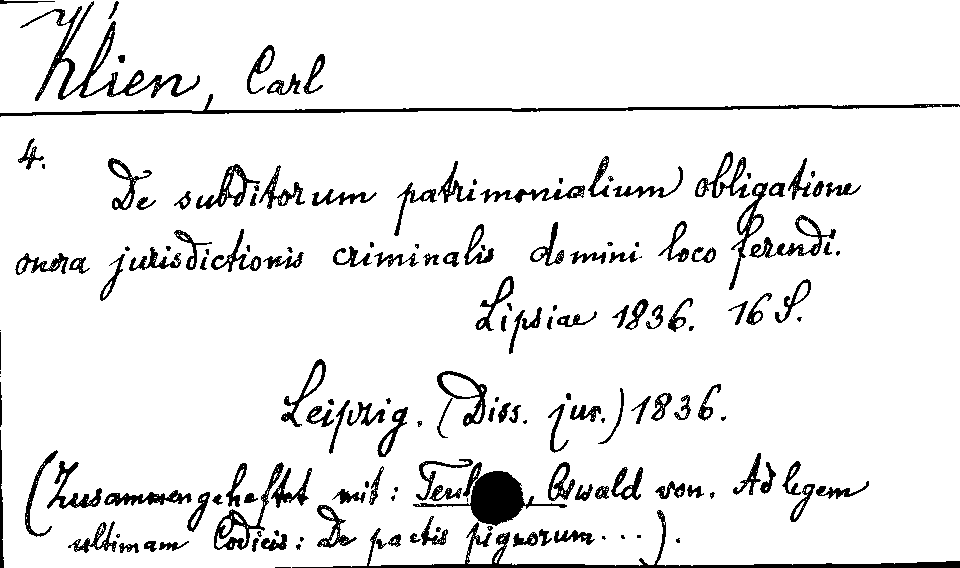 Klien, Carl
4.
De subditorum patrimonialium obligatione
onera jurisdictionis criminalis domini loco ferendi.
Lipsiae 1836. 16 S.
Leipzig. (Diss. jur.) 1836.
(Zusammengeheftet mit: , Oswald von. Ad legem
ultimam Codicis: De pactis pignorum...).